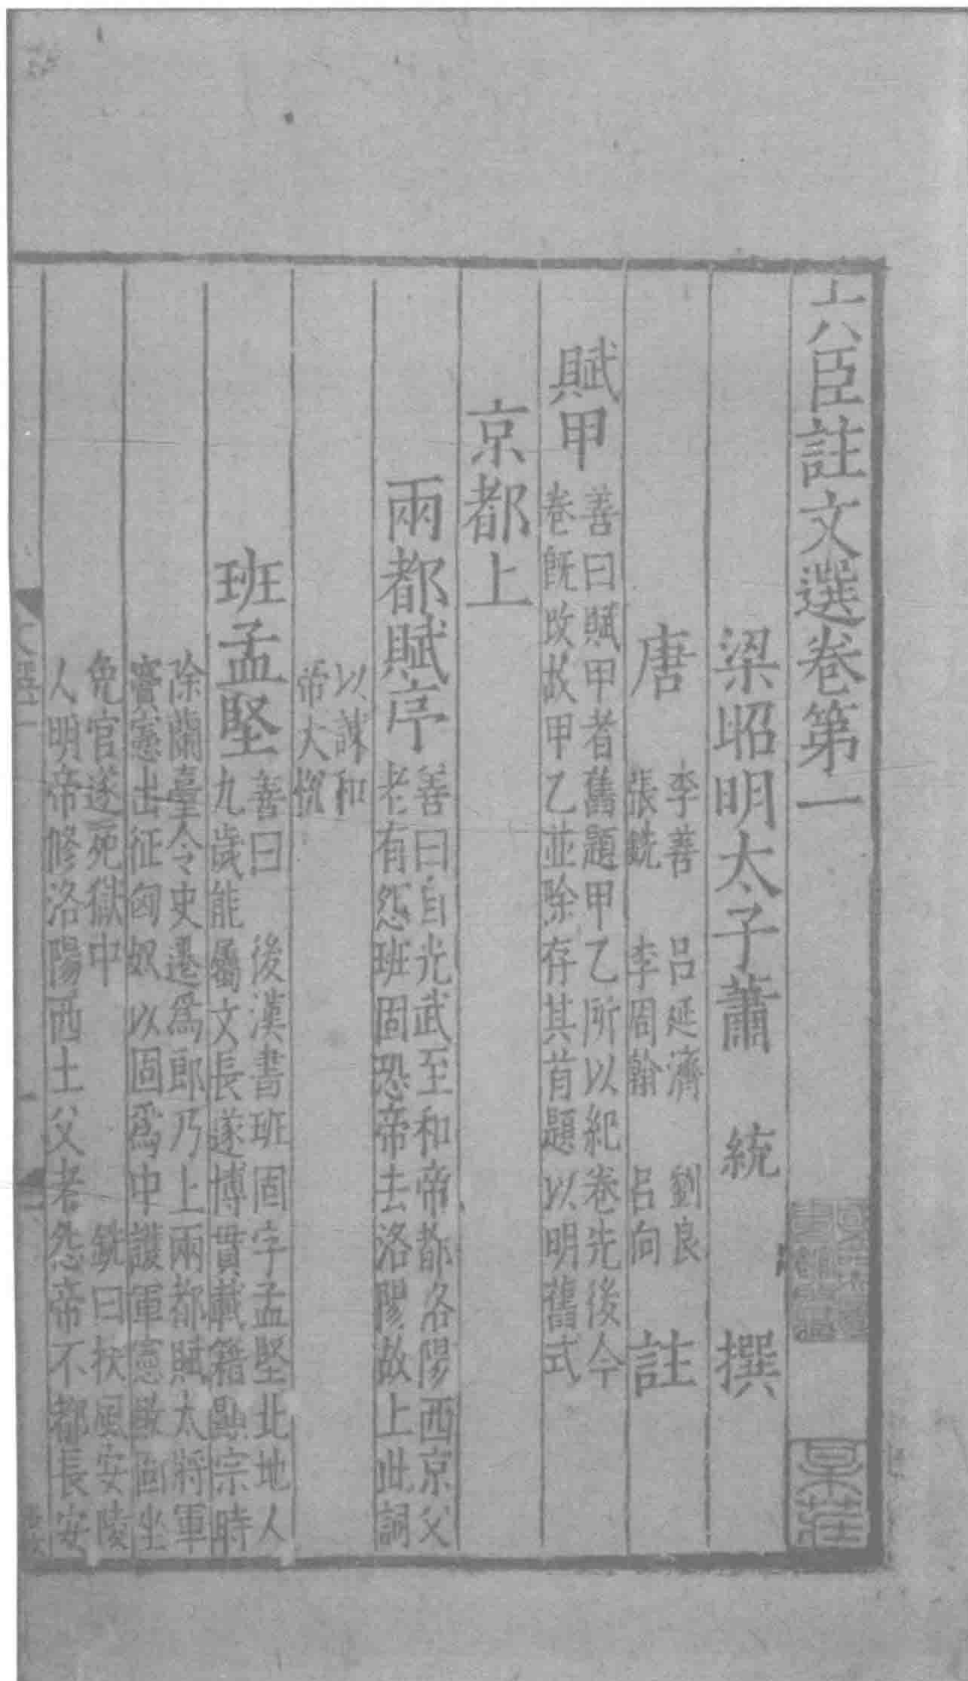 六臣註文選卷第一
梁昭明太子蕭統撰
唐
李善 呂延濟 劉良
張銑 李周翰 呂向
註
賦甲
善曰賦甲者舊題甲乙所以紀卷先後今
卷旣改故甲乙並除存其首題以明舊式
京都上
兩都賦序
善曰自光武至和帝都洛陽西京父
老有怨班固恐帝去洛陽故上此詞
以諫和
帝大悅
班孟堅
善曰 後漢書班固字孟堅北地人
九歲能屬文長遂博貫載籍顯宗時
除蘭臺令史遷爲郎乃上兩都賦大將軍
竇憲出征匈奴以固爲中護軍憲敗固坐
免官遂死獄中 銑曰扶風安陵
人明帝修洛陽西土父老怨帝不都長安
文選一